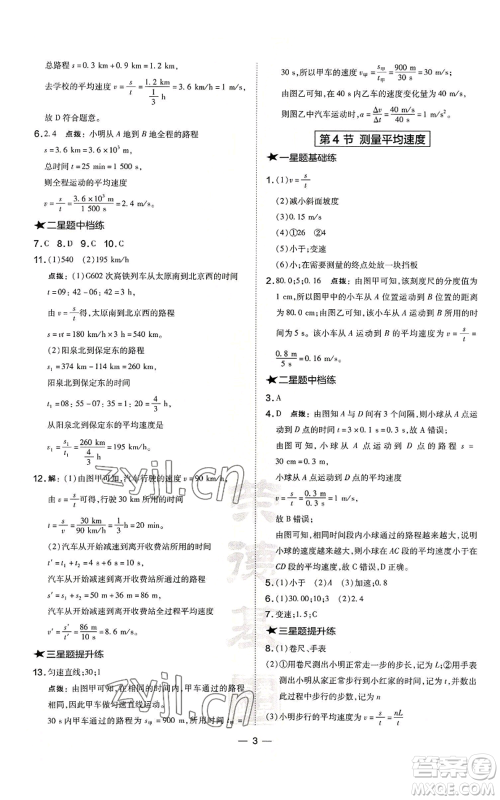 总路程 s=0.3 km+0.9 km=1.2 km
去学校的平均速度 v=s/t=1.2 km/(1/3 h)=3.6 km/h=1 m/s。
故 D 符合题意。
6. 2.4 点拨：小明从 A 地到 B 地的路程
s=3.6 km=3.6×10³ m
总时间 t=25 min=1 500 s
则全程运动的平均速度
v=s/t=3.6×10³ m/1 500 s=2.4 m/s。
★二星题中档练
7. C 8. D 9. C 10. C
11. (1)540 (2)195
点拨：(1)G602 次高铁列车从太原南到北京西的时间
t=09：42-06：42=3 h
由 v=s/t得，太原南到北京西的路程
s=vt=180 km/h×3 h=540 km
(2)阳泉北到保定东的路程
s₁=374 km-114 km=260 km
阳泉北到保定东的时间
t₁=08：35-07：15=1 h 20 min=4/3 h
从阳泉北到保定东的平均速度
v₁=s₁/t₁=260 km/(4/3 h)=195 km/h。
12. 解：(1)由图甲可知，汽车行驶的速度为90 km/h。
由 v=s/t得，汽车到达收费站所用时间
t=s/v=30 km/90 km/h=1/3 h=20 min。
(2)汽车从开始减速到离开收费站的时间
汽车从开始减速到离开收费站所通过的路程
汽车从开始减速到离开收费站全过程平均速度
v′=s′/t′=86 m/10 s=8.6 m/s。
★三星题提升练
13. 匀速直线；30；1
点拨：由图甲可知，甲车通过的路程与时间成正比，因此甲车做匀速直线运动。
30 s内，甲车通过的路程为 s甲=900 m，运动时间 t甲=
30 s，所以甲车的速度 v甲=s甲/t甲=900 m/30 s=30 m/s。
由图乙可知，在 40 s内汽车的速度变化量为 40 m/s，
则图乙中汽车运动的 a=Δv/t=40 m/s/40 s=1 m/s²。
第 4 节 测量平均速度
★一星题基础练
1. (1)v=s/t
(2)减小斜面坡度
(3)时间
(4)①26 ②20
(5)小于；变速
(6)小；在需要测量的终点处放一块挡板
2. 80.0；5；0.16 点拨：由图可知，该刻度尺的分度值为
1 cm，所以图甲中小车从 A 点运动到 B 点的路程是
80.0 cm，由图甲可知，所用时间为 5 s。
根据公式可知，小车从 A 点运动到 B 点的平均速度 v=s/t=
0.8 m/5 s=0.16 m/s。
★二星题中档练
3. A
4. D 点拨：由图可知，在 AD 之间有 3 个间隔，则小球
从 A 点运动到 D 点的时间 t=3×1 s=3 s，故 A 错误；
由图可知，小球从 A 点运动到 D 点的路程 s=
30 cm=0.3 m
小球从 A 点运动到 D 点的平均速度
v=s/t=0.3 m/3 s=0.1 m/s
故 B 错误；
由图可知，相同时间内小球通过的路程越来越大，说明
小球的速度越来越大，所以小球在 AC 段的平均速度小于
CD 段的平均速度，故 C 错误，D 正确。
5. (1)小于 (2)加速；0.9 (3)A
6. (1)30.00；10.00 (2)>；小
7. 变速；1.5；C
★三星题提升练
8. (1)卷尺、手表
(3)小明步行的平均速度 v=s/t=nL/t
3
zyjl.cn